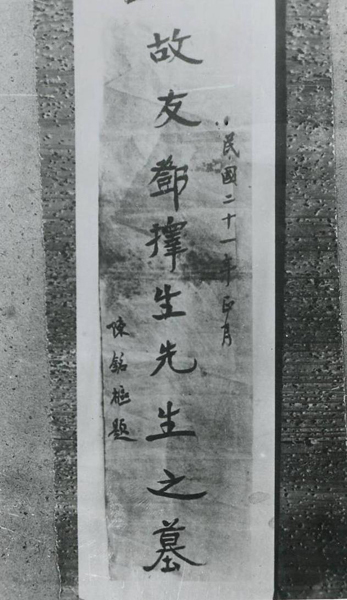 民國二十一年正月
故友鄧擇生先生之墓
陳銘樞題